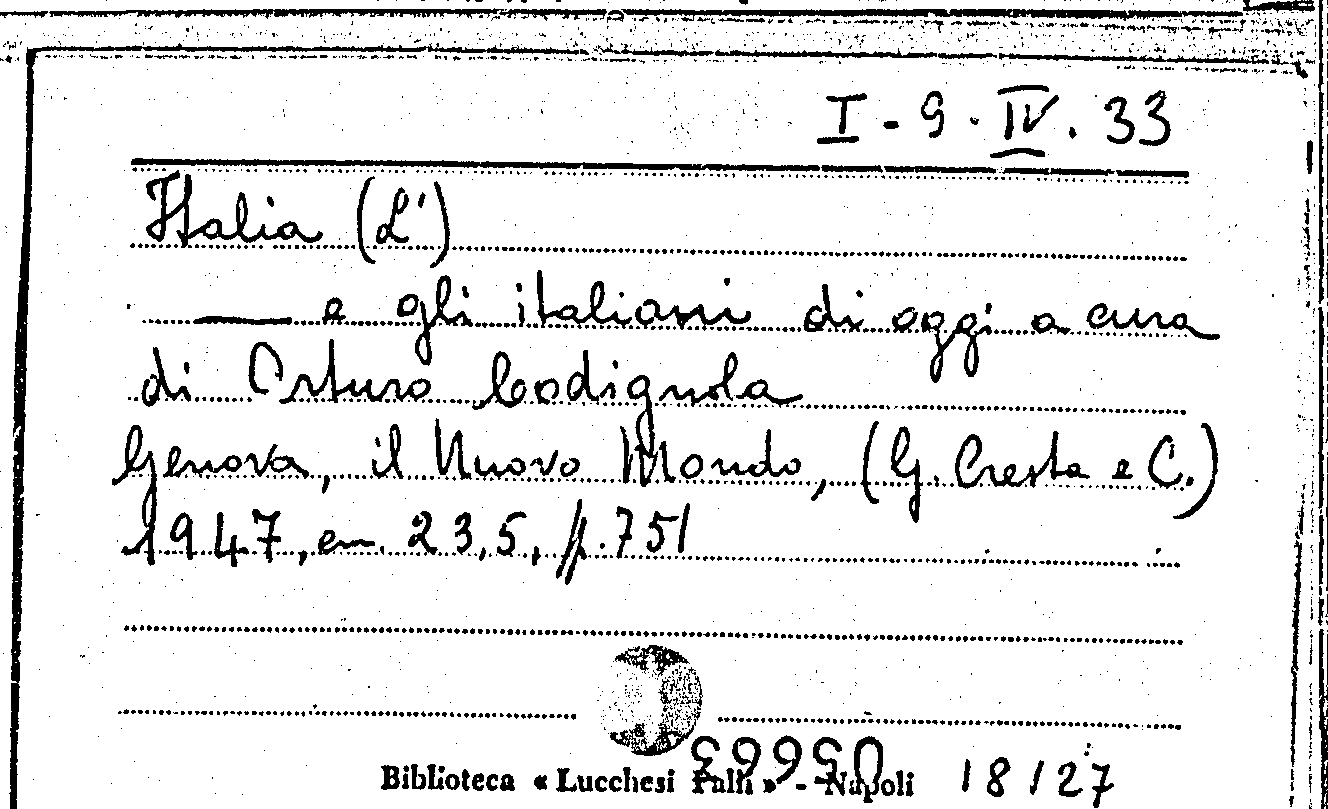 I - 9 . IV . 33
Italia (L')
—— e gli italiani di oggi a cura
di Arturo Codignola
Genova, il Nuovo Mondo, (G. Cresta e C.)
1947, cm. 23,5, p. 751
Biblioteca « Lucchesi Palli » - Napoli 18127